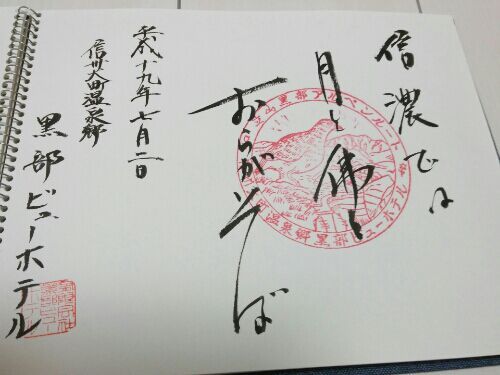 信濃では
月と佛と
おらがそば
平成十九年七月二日
信州大町温泉郷
黒部ビューホテル
立山黒部アルペンルート
温泉郷黒部ビューホテル